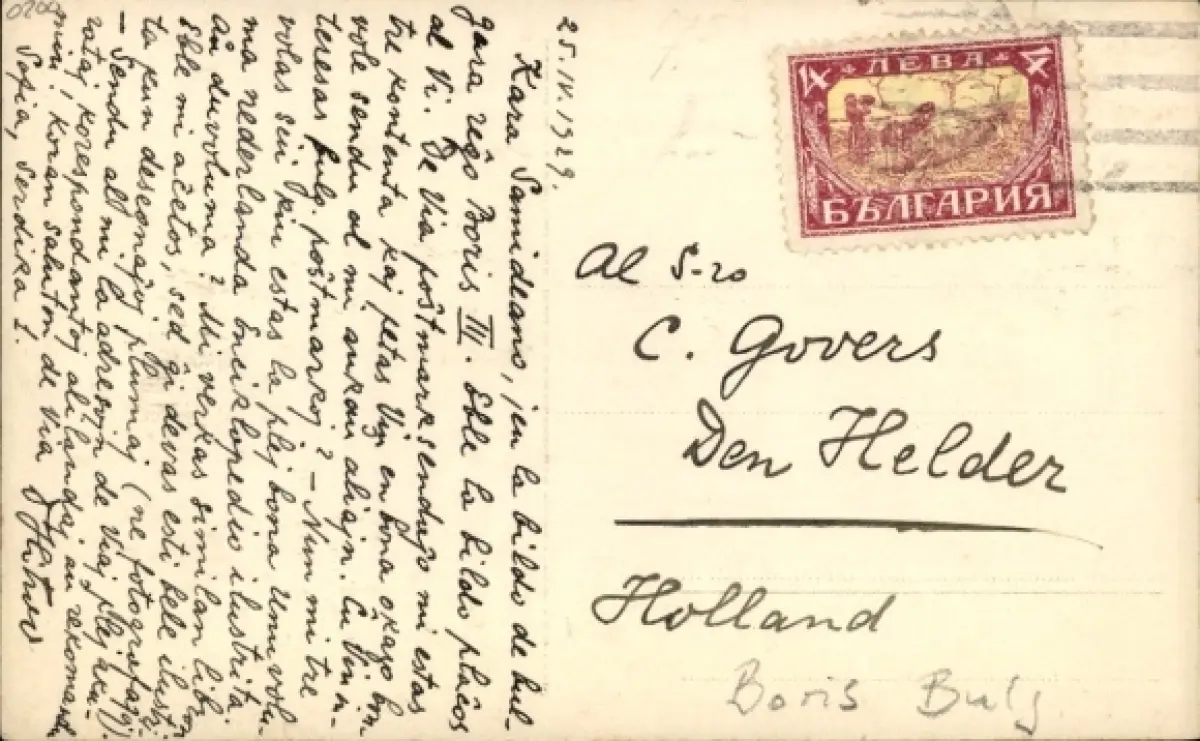 25.IV.1929.
Kara Samideano, jen la bildo de bul-
gara reĝo Boris III. Eble la bildo plaĉos
al Vi. De Via poŝtmarksendaĵo mi estas
tre kontenta kaj petas Vin en bona okazo bon
vole sendu al mi ankau aliajn. Ĉu Vin in-
teresas bulg. poŝtmarkoj? – Nun mi tre
volas sciu kiu estas la plej bona unuvolu-
ma nederlanda enciklopedio ilustrita.
aŭ duvoluma? Mi verkas similan libron
Eble mi aĉetos, sed ĝi devas esti bele ilustri-
ta kun desegnaĵoj plumaj (ne fotografaĵoj).
– Sendu al mi la adresojn de Viaj plej ku-
rataj korespondantoj alilandaj aŭ rekomand
min! Koran saluton de Via
Sofia, Serdika 2.
4 ЛЕВА 4
БЪЛГАРИЯ
Al S-ro
C. Govers
Den Helder
Holland
Boris Bulg